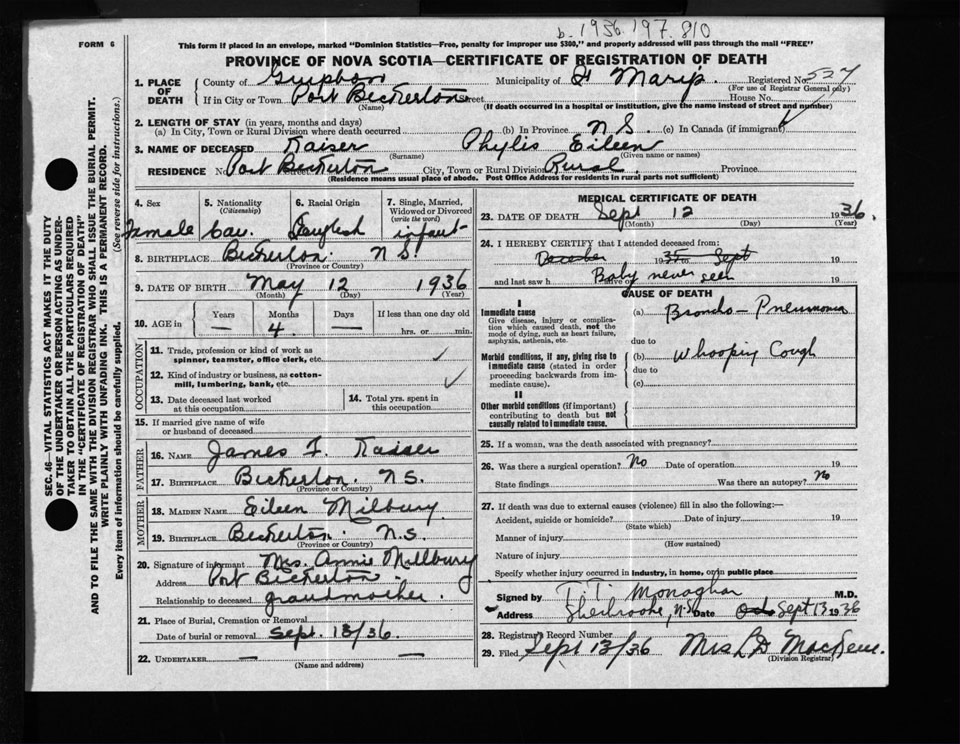 b. 1936.197.810
FORM 6
This form if placed in an envelope, marked "Dominion Statistics—Free, penalty for improper use $300," and properly addressed will pass through the mail "FREE"
PROVINCE OF NOVA SCOTIA—CERTIFICATE OF REGISTRATION OF DEATH
1. PLACE OF DEATH County of Municipality of St Mary's Registered No. 527
(For use of Registrar General only)
If in City or Town Port Beckerton Street House No.
(Name) (If death occurred in a hospital or institution, give the name instead of street and number)
2. LENGTH OF STAY (in years, months and days)
(a) In City, Town or Rural Division where death occurred (b) In Province N.S. (c) In Canada (if immigrant) ✓
3. NAME OF DECEASED Kaiser Phylis Eileen
(Surname) (Given name or names)
RESIDENCE No. Port Beckerton Street City, Town or Rural Division Rural Province
(Residence means usual place of abode. Post Office Address for residents in rural parts not sufficient)
SEC. 46—VITAL STATISTICS ACT MAKES IT THE DUTY
OF THE UNDERTAKER OR PERSON ACTING AS UNDER-
TAKER TO OBTAIN ALL THE PARTICULARS REQUIRED
IN THE "CERTIFICATE OF REGISTRATION OF DEATH"
AND TO FILE THE SAME WITH THE DIVISION REGISTRAR WHO SHALL ISSUE THE BURIAL PERMIT.
WRITE PLAINLY WITH UNFADING INK. THIS IS A PERMANENT RECORD.
Every item of information should be carefully supplied. (See reverse side for instructions.)
4. Sex 5. Nationality (Citizenship) 6. Racial Origin 7. Single, Married, Widowed or Divorced (write the word)
Female Can. English infant
8. BIRTHPLACE Beckerton N S.
(Province or Country)
9. DATE OF BIRTH May 12 1936
(Month) (Day) (Year)
10. AGE in Years Months Days If less than one day old
— 4 — hrs. or min.
OCCUPATION
11. Trade, profession or kind of work as spinner, teamster, office clerk, etc. ✓
12. Kind of industry or business, as cotton-mill, lumbering, bank, etc. ✓
13. Date deceased last worked at this occupation 14. Total yrs. spent in this occupation
15. If married give name of wife or husband of deceased
FATHER
16. NAME James F. Kaiser
17. BIRTHPLACE Beckerton. N S.
(Province or Country)
MOTHER
18. MAIDEN NAME Eileen Milbury
19. BIRTHPLACE Beckerton. N.S.
(Province or Country)
20. Signature of informant Mrs. Annie Millbury
Address Port Beckerton.
Relationship to deceased grandmother.
21. Place of Burial, Cremation or Removal
Date of burial or removal Sept. 13/36.
22. UNDERTAKER — —
(Name and address)
MEDICAL CERTIFICATE OF DEATH
23. DATE OF DEATH Sept 12 1936.
(Month) (Day) (Year)
24. I HEREBY CERTIFY that I attended deceased from:
December 1935 to Sept 19
and last saw h alive on Baby never seen 19
CAUSE OF DEATH
I
Immediate cause (a) Broncho-Pneumonia
Give disease, injury or complication which caused death, not the mode of dying, such as heart failure, asphyxia, asthenia, etc.
due to
Morbid conditions, if any, giving rise to immediate cause (stated in order proceeding backwards from immediate cause). (b) Whooping Cough
due to
(c)
II
Other morbid conditions (if important) contributing to death but not causally related to immediate cause.
25. If a woman, was the death associated with pregnancy?
26. Was there a surgical operation? No Date of operation 19
State findings Was there an autopsy? No
27. If death was due to external causes (violence) fill in also the following:—
Accident, suicide or homicide? Date of injury 19
(State which)
Manner of injury
(How sustained)
Nature of injury
Specify whether injury occurred in industry, in home, or in public place
Signed by T. T. Monaghan M.D.
Address Sherbrooke, N.S. Date Oct Sept 13 1936
28. Registrar's Record Number
29. Filed Sept 13/36 Mrs L D
(Division Registrar)